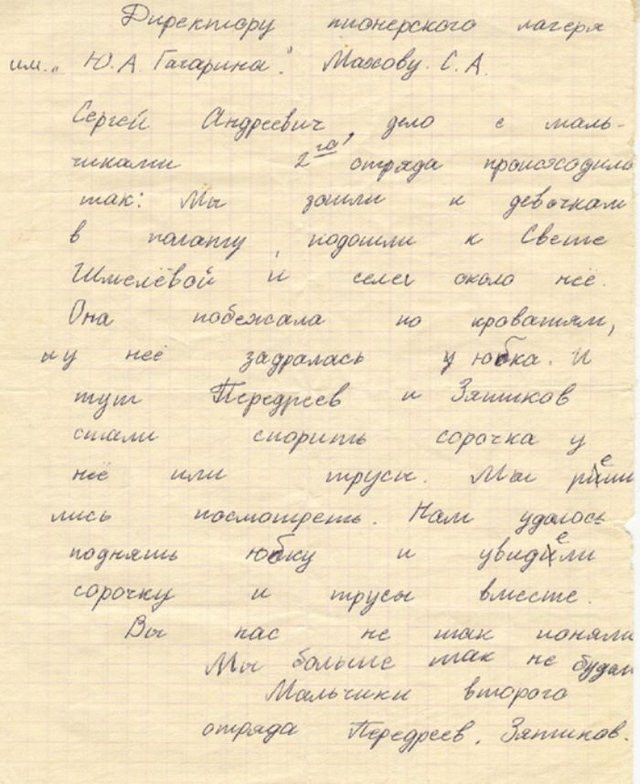 Директору пионерского лагеря
им. „Ю. А. Гагарина". Махову. С. А.
Сергей Андреевич, дело с маль-
чиками 2го отряда происходило
так: Мы зашли к девочкам
в палату, подошли к Свете
Шмелёвой и селе около неё.
Она побежала по кроватям,
и у неё задралась юбка. И
тут Передреев и Зятиков
стали спорить сорочка у
неё или трусы. Мы реши
лись посмотреть. Нам удалось
поднять юбку и увидели
сорочку и трусы вместе.
Вы нас не так поняли
Мы больше так не будем
Мальчики второго
отряда Передреев, Зятиков.